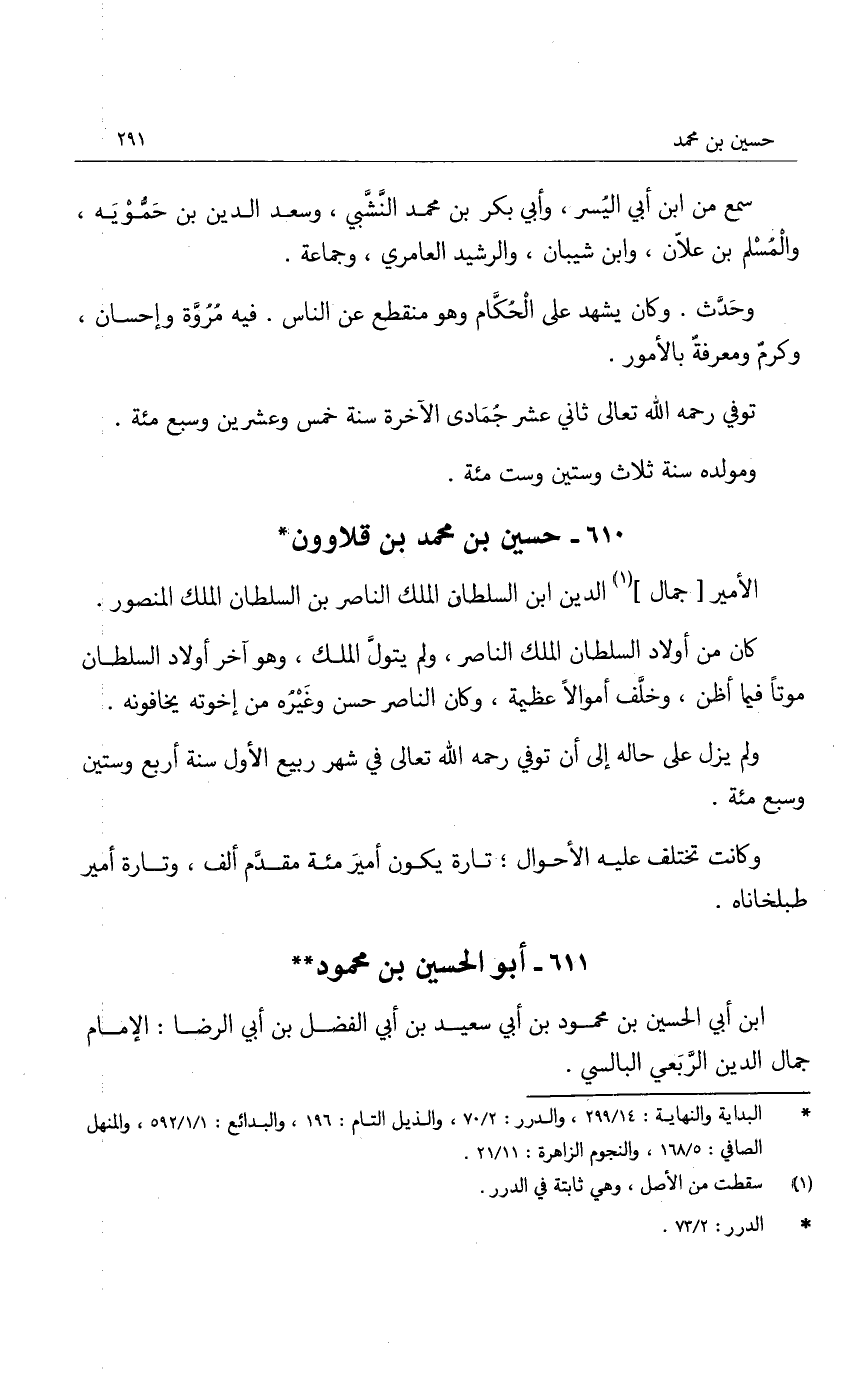 حسين بن محمد ٢٩١
سمع من ابن أبي اليُسر ، وأبي بكر بن محمد النَّشَّبي ، وسعد الدين بن حَمُّوْيَه ،
والْمُسْلم بن علاّن ، وابن شيبان ، والرشيد العامري ، وجماعة .
وحَدَّث . وكان يشهد على الْحُكَّام وهو منقطع عن الناس . فيه مُرُوَّة وإحسان ،
وكرمٌ ومعرفةٌ بالأمور .
توفي رحمه الله تعالى ثاني عشر جُمَادى الآخرة سنة خمس وعشرين وسبع مئة .
ومولده سنة ثلاث وستين وست مئة .
٦١٠ ـ حسين بن محمد بن قلاوون*
الأمير [ جمال ](١) الدين ابن السلطان الملك الناصر بن السلطان الملك المنصور .
كان من أولاد السلطان الملك الناصر ، ولم يتولَّ الملك ، وهو آخر أولاد السلطان
موتاً فيما أظن ، وخلَّف أموالاً عظيمة ، وكان الناصر حسن وغَيْرُه من إخوته يخافونه .
ولم يزل على حاله إلى أن توفي رحمه الله تعالى في شهر ربيع الأول سنة أربع وستين
وسبع مئة .
وكانت تختلف عليه الأحوال ؛ تارة يكون أميرَ مئة مقدَّم ألف ، وتارة أمير
طبلخاناه .
٦١١ ـ أبو الحسين بن محمود**
ابن أبي الحسين بن محمود بن أبي سعيد بن أبي الفضل بن أبي الرضا : الإمام
جمال الدين الرَّبَعي البالسي .
* البداية والنهاية : ٢٩٩/١٤ ، والدرر : ٧٠/٢ ، والذيل التام : ١٩٦ ، والبدائع : ٥٩٢/١/١ ، والمنهل
الصافي : ١٦٨/٥ ، والنجوم الزاهرة : ٢١/١١ .
(١) سقطت من الأصل ، وهي ثابتة في الدرر .
* الدرر : ٧٣/٢ .